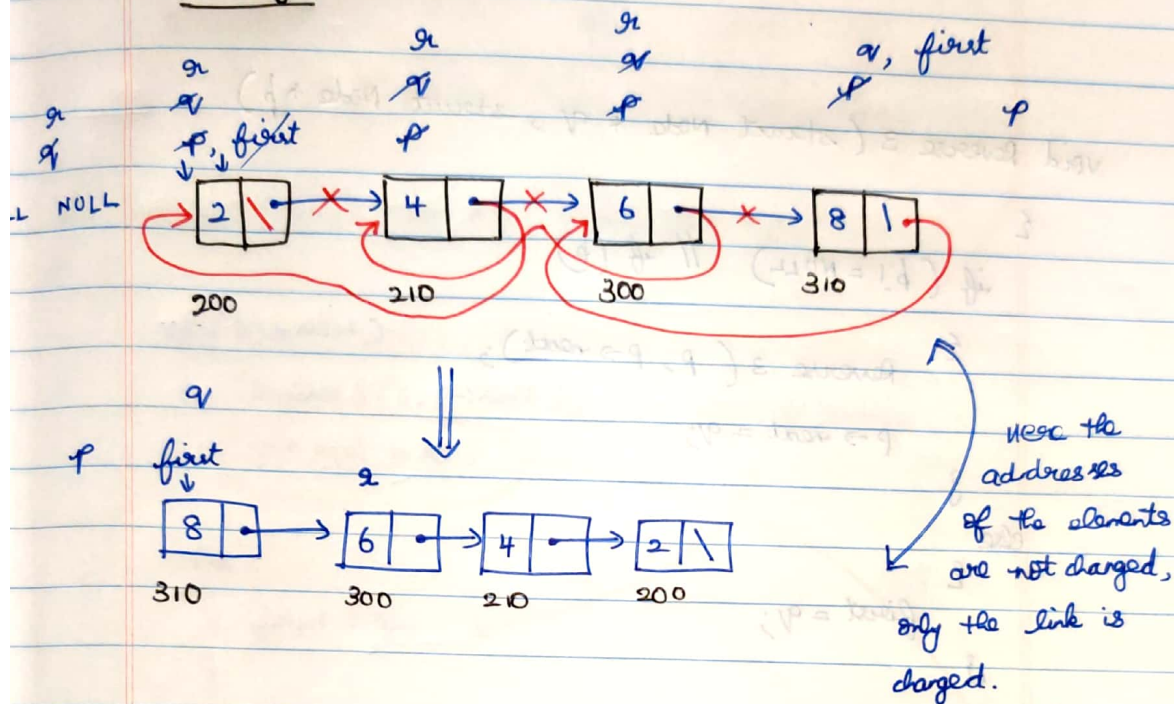 r r r
r q q q, first
r q p p
q p, first p p
NULL 2 4 6 8
200 210 300 310
q
p first r
8 6 4 2
310 300 210 200
Here the
addresses
of the elements
are not changed,
only the link is
changed.